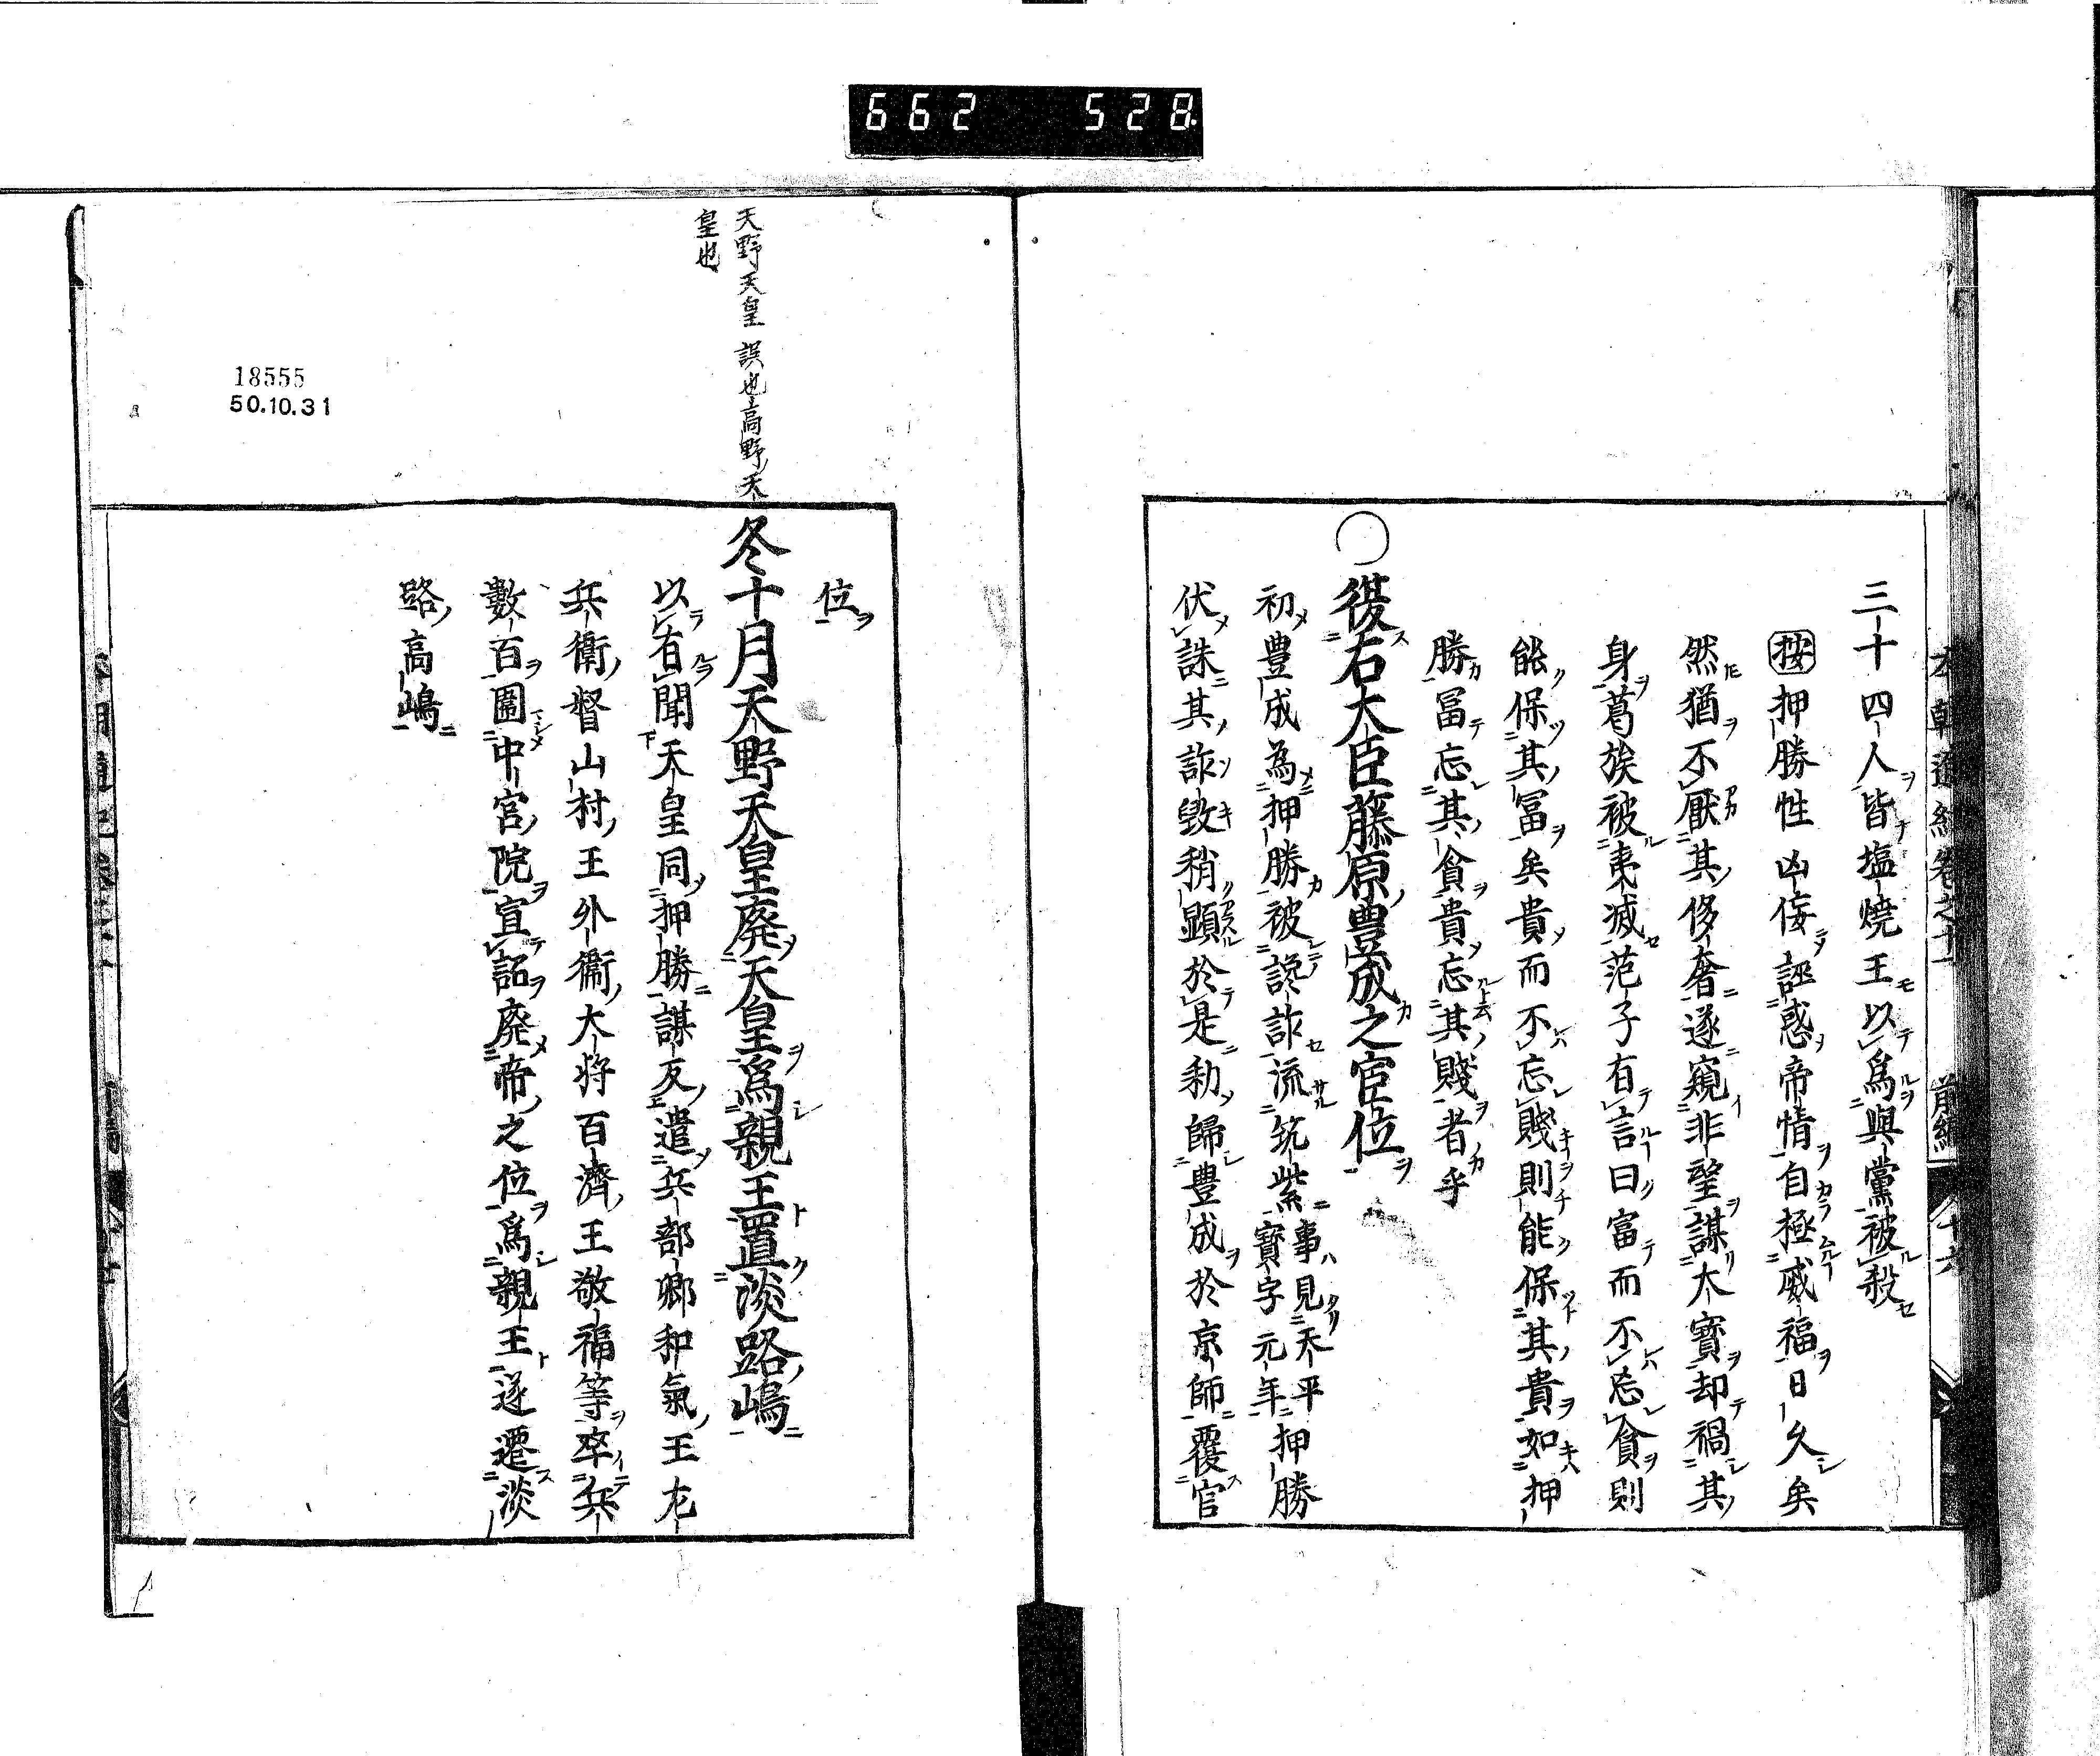 662 528
本朝通紀卷之十一 前編 十六
三十四人皆塩燒王以爲與黨被殺
按押勝性凶侫誣惑帝情自極威福日久矣
然猶不厭其侈奢遂窺非望謀大寳却禍其
身葛族被夷滅范子有言曰富而不忘貧則
能保其冨矣貴而不忘賤則能保其貴如押
勝冨忘其貧貴忘其賤者乎
○復右大臣藤原豊成之官位
初豊成為押勝被讒詐流筑紫事見天平寳字元年押勝
伏誅其詐毀稍顯於是勅歸豊成於京師覆官
位
冬十月天野天皇廃天皇爲親王置淡路嶋
以有聞天皇同押勝謀反遣兵部卿和氣王左
兵衛督山村王外衞大将百濟王敬福等卒兵
數百圍中宮院宣詔廃帝之位爲親王遂遷淡
路高嶋
天野天皇誤也高野天
皇也
18555
50.10.31